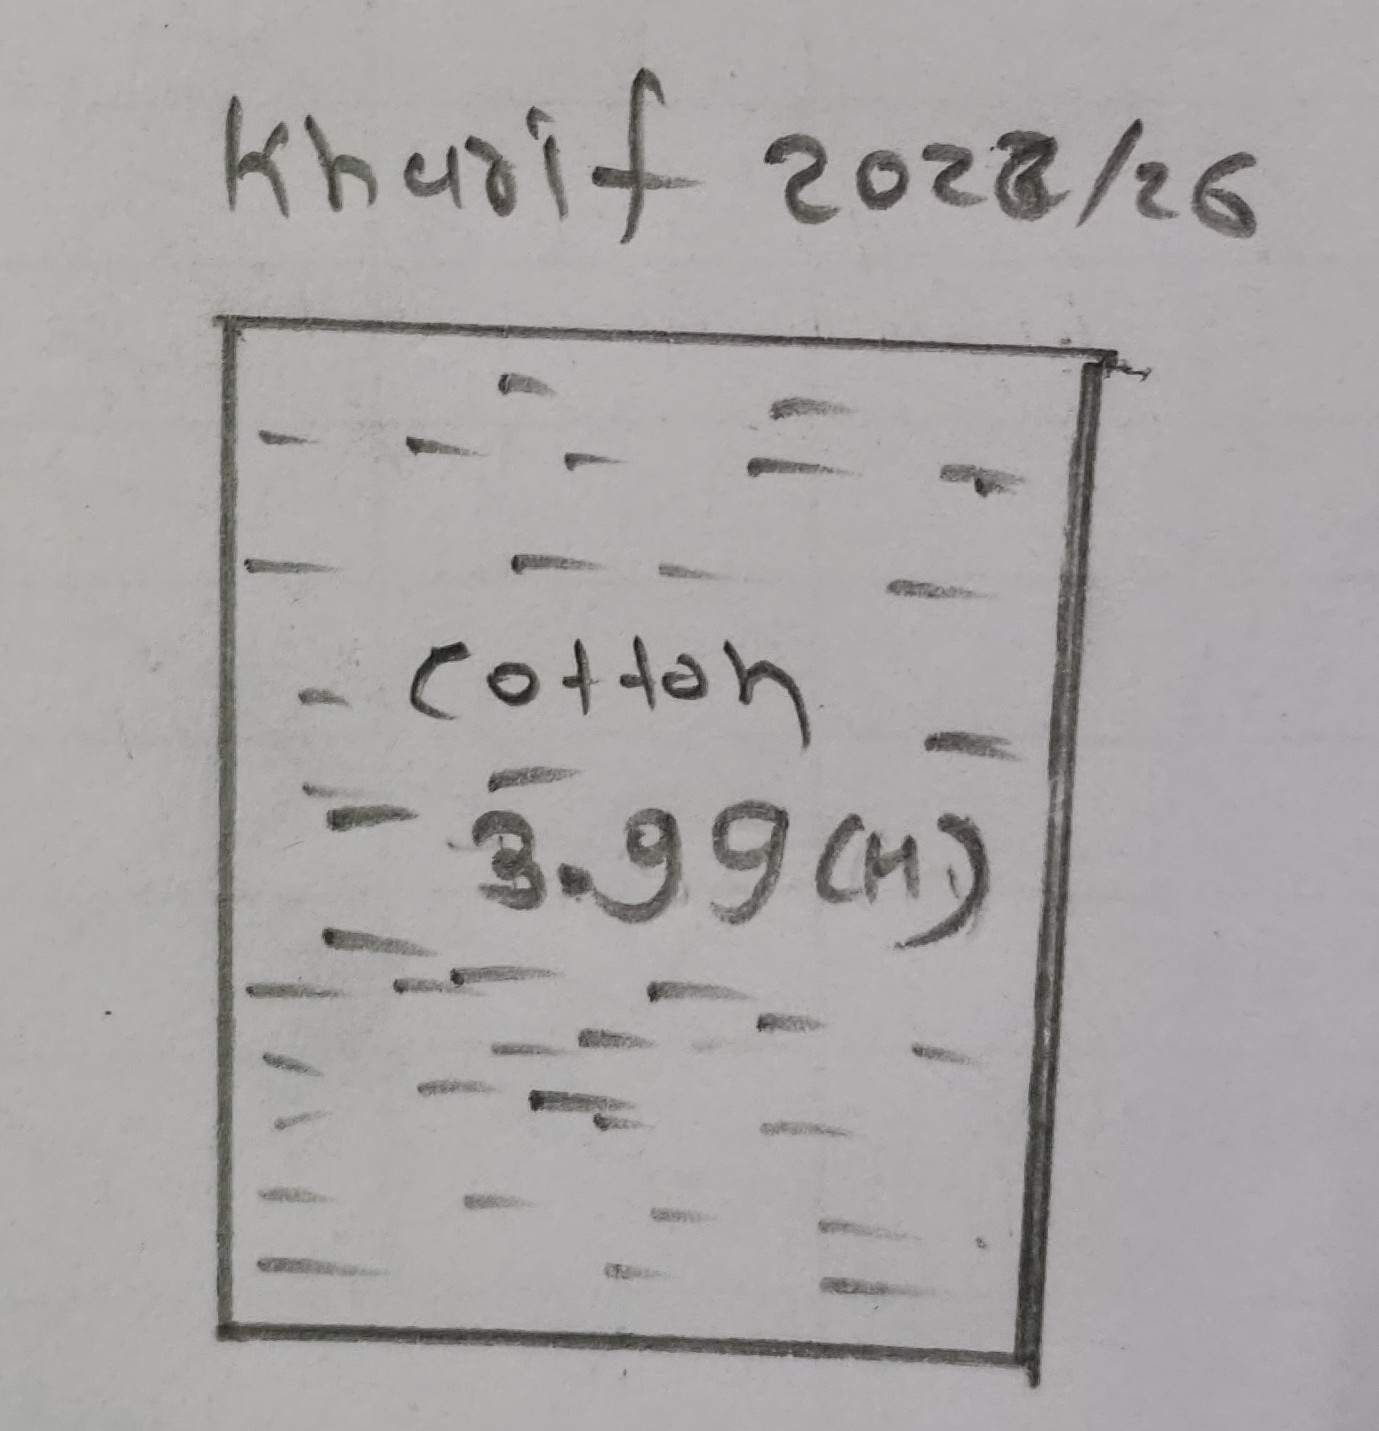 Kharif 2022/26
Cotton
3.99 (H)